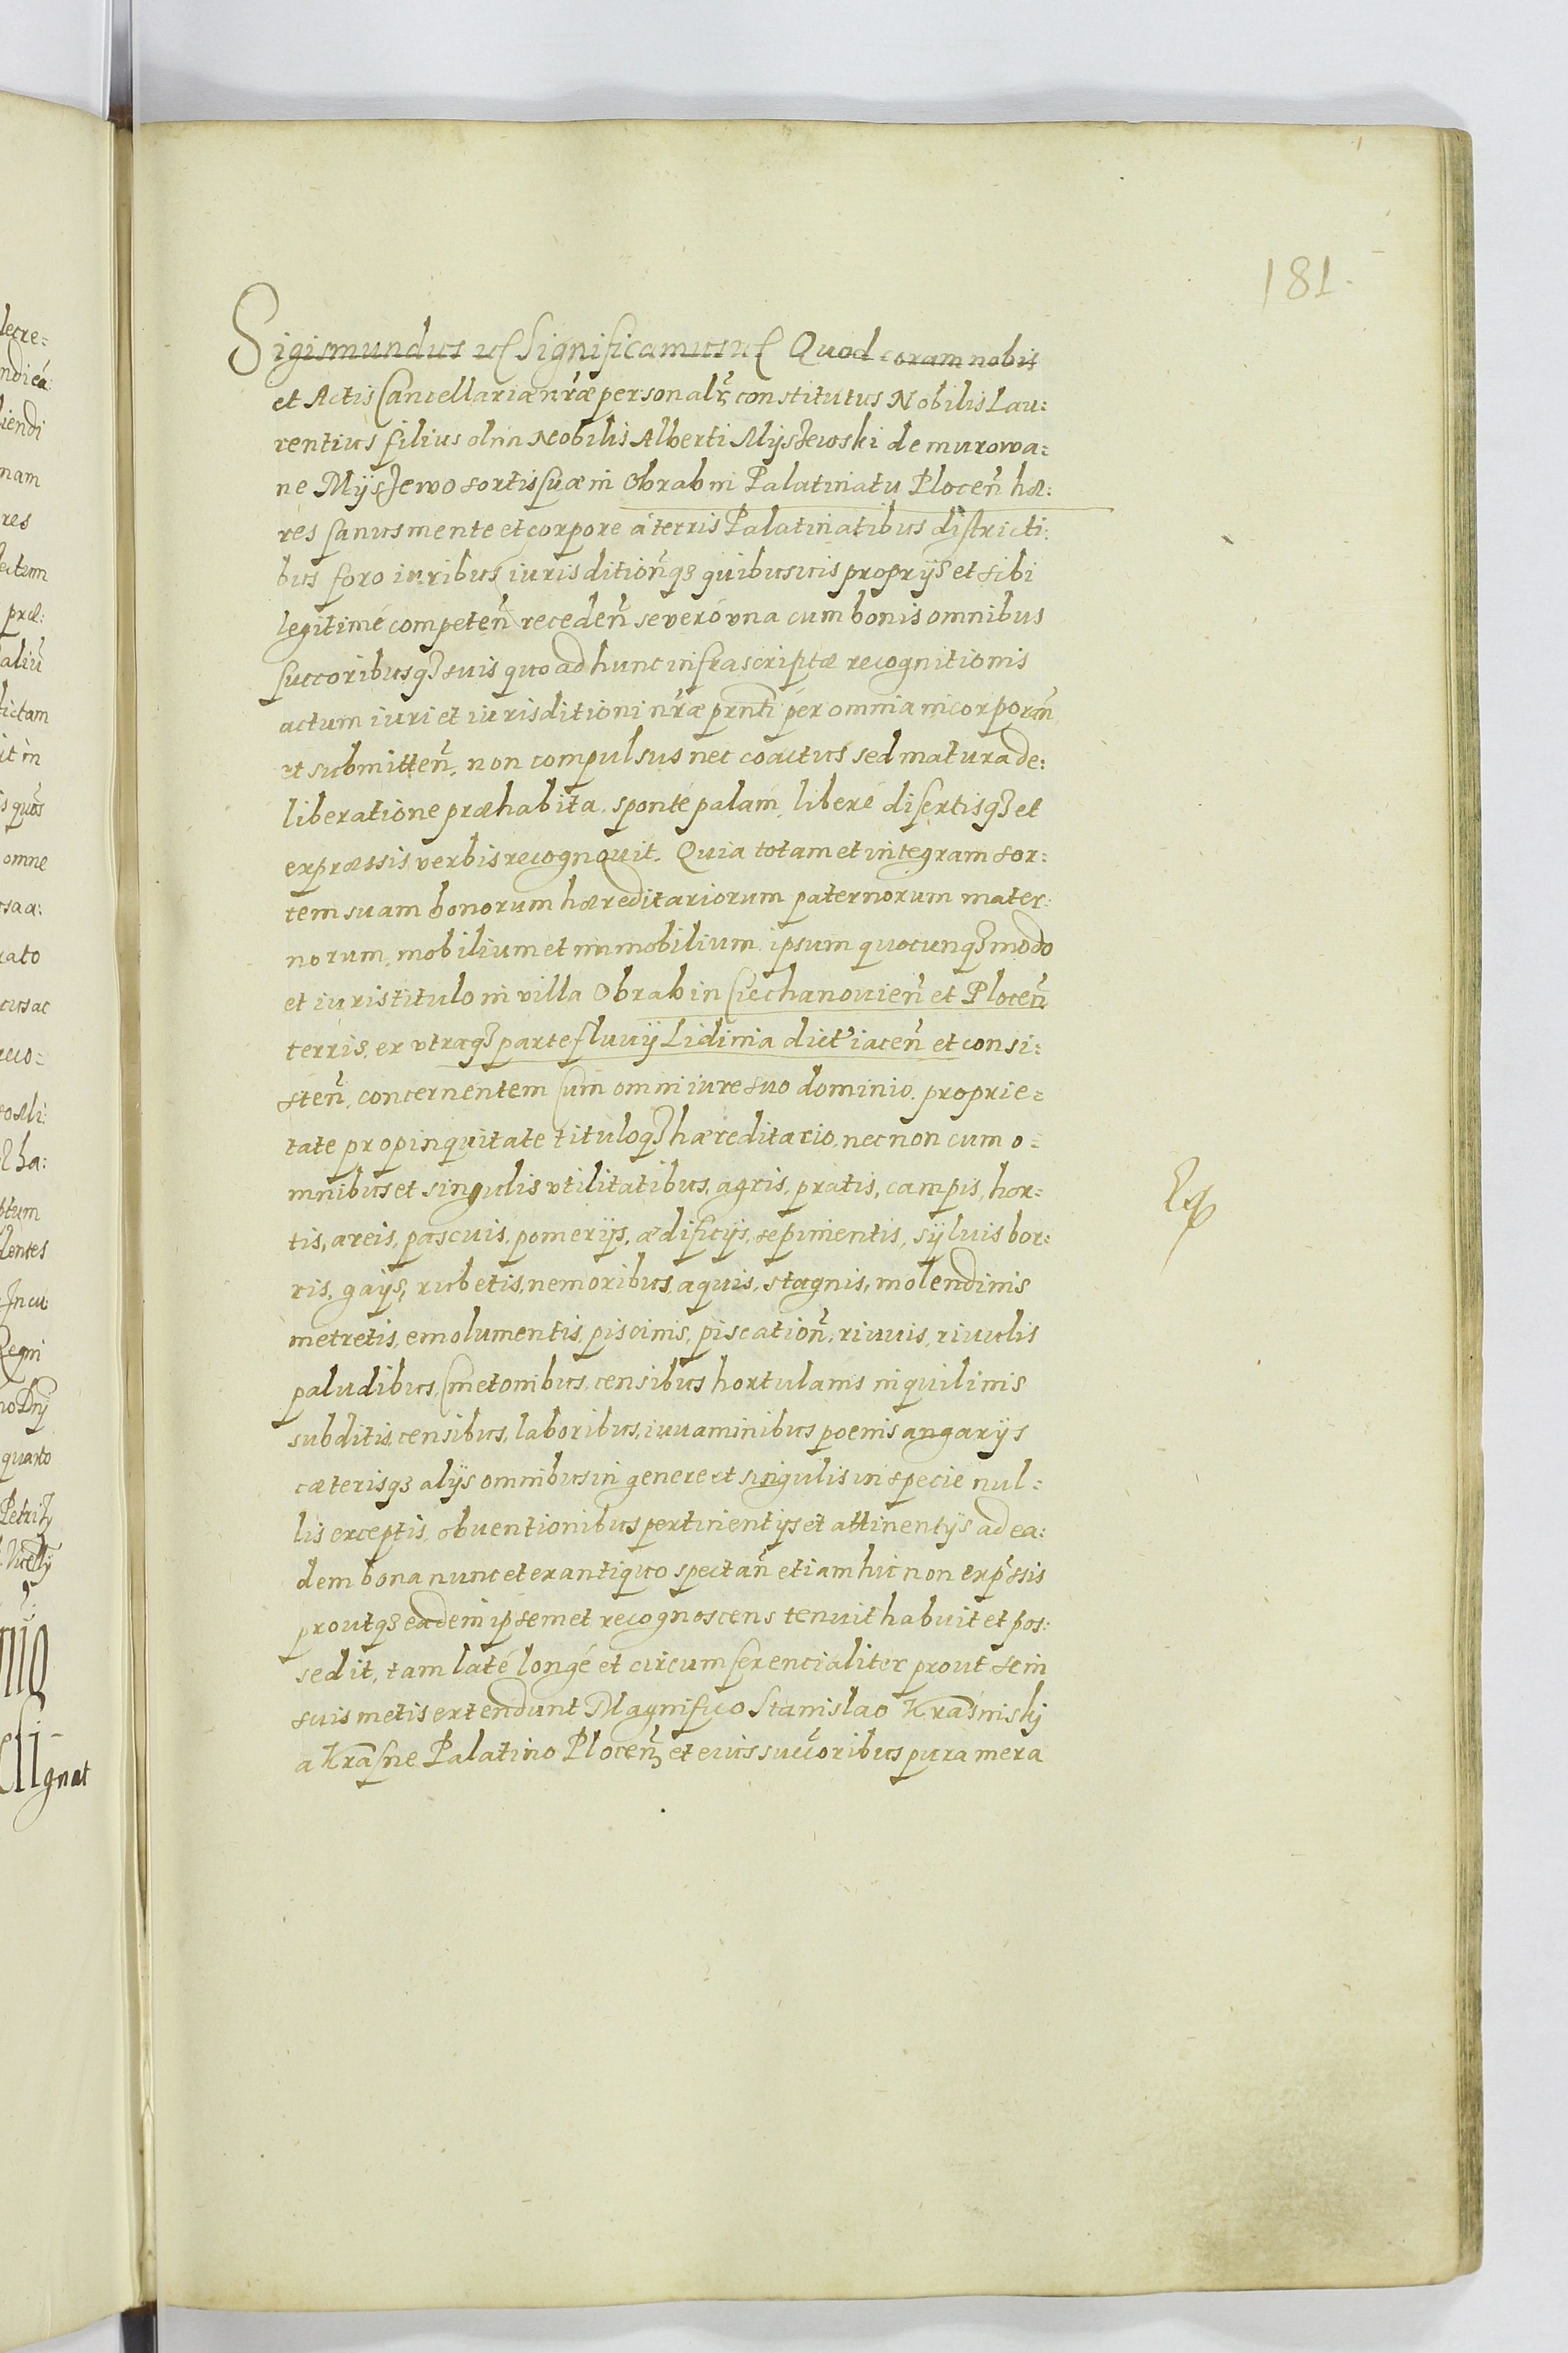 181.
Sigismundus etc Significamus etc Quod coram nobis
et Actis Cancellariæ nr̃æ personalr̃ constitutus Nobilis Lau:
rentius filius olim Nobilis Alberti Myszewski de murowa:
ne Myszewo sortis suæ in Obrab in Palatinatu Plocen̄ hæ:
res sanus mente et corpore á terris Palatinatibus districti:
bus foro iuribus iurisdition̄q3 quibusuis proprijs et sibi
legitimé competen̄ receden̄ se veró vna cum bonis omnibus
succoribusq3 suis quo ad hunc infrascriptæ recognitionis
actum iuri et iurisditioni nr̃æ prnti per omnia incorporan̄
et submitten̄, non compulsus nec coactus sed matura de:
liberatione præhabita, sponté palam, liberé disertisq3 et
expræssis verbis recognouit. Quia totam et integram sor:
tem suam bonorum hæreditariorum paternorum mater:
norum, mobilium et immobilium, ipsum quocunq3 modo
et iuris titulo in villa Obrab in Ciechanouien̄ et Plocen̄
terris, ex vtraq3 parte fluuij Lidinia dict' iacen̄ et consi:
sten̄, concernentem Cum omni iure suo dominio, proprie=
tate propinquitate tituloq3 hæreditario, necnon cum o=
mnibus et singulis vtilitatibus, agris, pratis, campis, hor=
tis, areis, pascuis, pomerijs, ædificijs, sepimentis, syluis bor:
ris, gays, rubetis, nemoribus, aquis, stagnis, molendinis
metretis, emolumentis, piscinis, piscation̄, riuuis, riuulis
paludibus, Cmetonibus, censibus hortulanis inquilinis
subditis, censibus, laboribus, iuuaminibus poenis angarijs
cæterisq3 alijs omnibus in genere et singulis in specie nul=
lis exceptis, obuentionibus pertinentijs et attinentijs ad ea:
dem bona nunc et ex antiquo spectan̄ etiam hic non exp̄ssis
proutq3 eadem ipsemet recognoscens tenuit habuit et pos:
sedit, tam laté longé et circumferencialiter prout se in
suis metis extendunt Magnifico Stanislao Krasinski
a Krasne Palatino Plocen̄ et eius succoribus pura mera